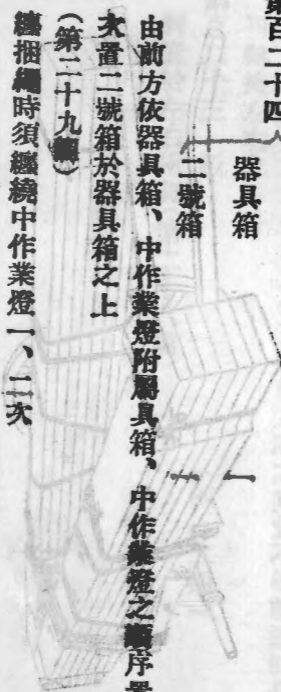 第百二十四
器具箱 一
二號箱 一
由前方依器具箱、中作業燈附屬具箱、中作業燈之順序置
次置二號箱於器具箱之上
(第二十九圖)
纏捆繩時須纏繞中作業燈一、二次